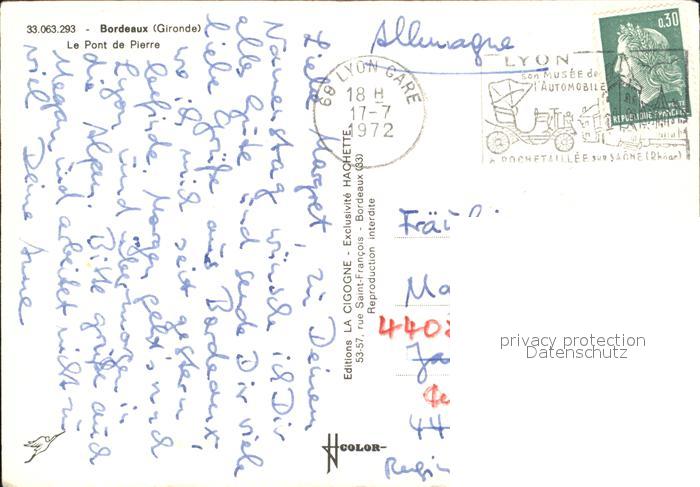 33.063.293 - Bordeaux (Gironde)
Le Pont de Pierre
Liebe Margret, zu Deinem
Namenstag wünsche ich Dir
alles Gute und sende Dir viele
liebe Grüße aus Bordeaux,
wo ich mich seit gestern
befinde. Morgen geht's nach
Lyon und übermorgen in
die Alpen. Bitte grüße auch
und arbeitet nicht zu
viel Deine Anne
Editions LA CIGOGNE - Exclusivité HACHETTE
53-57, rue Saint-François - Bordeaux (33)
Reproduction interdite
COLOR
Allemagne
69 LYON GARE
18 H
17-7
1972
LYON
son MUSÉE de
l'AUTOMOBILE
à ROCHETAILLÉE sur SAÔNE (Rhône)
0,30
REPUBLIQUE FRANÇAISE
Ma
4402
44
privacy protection
Datenschutz